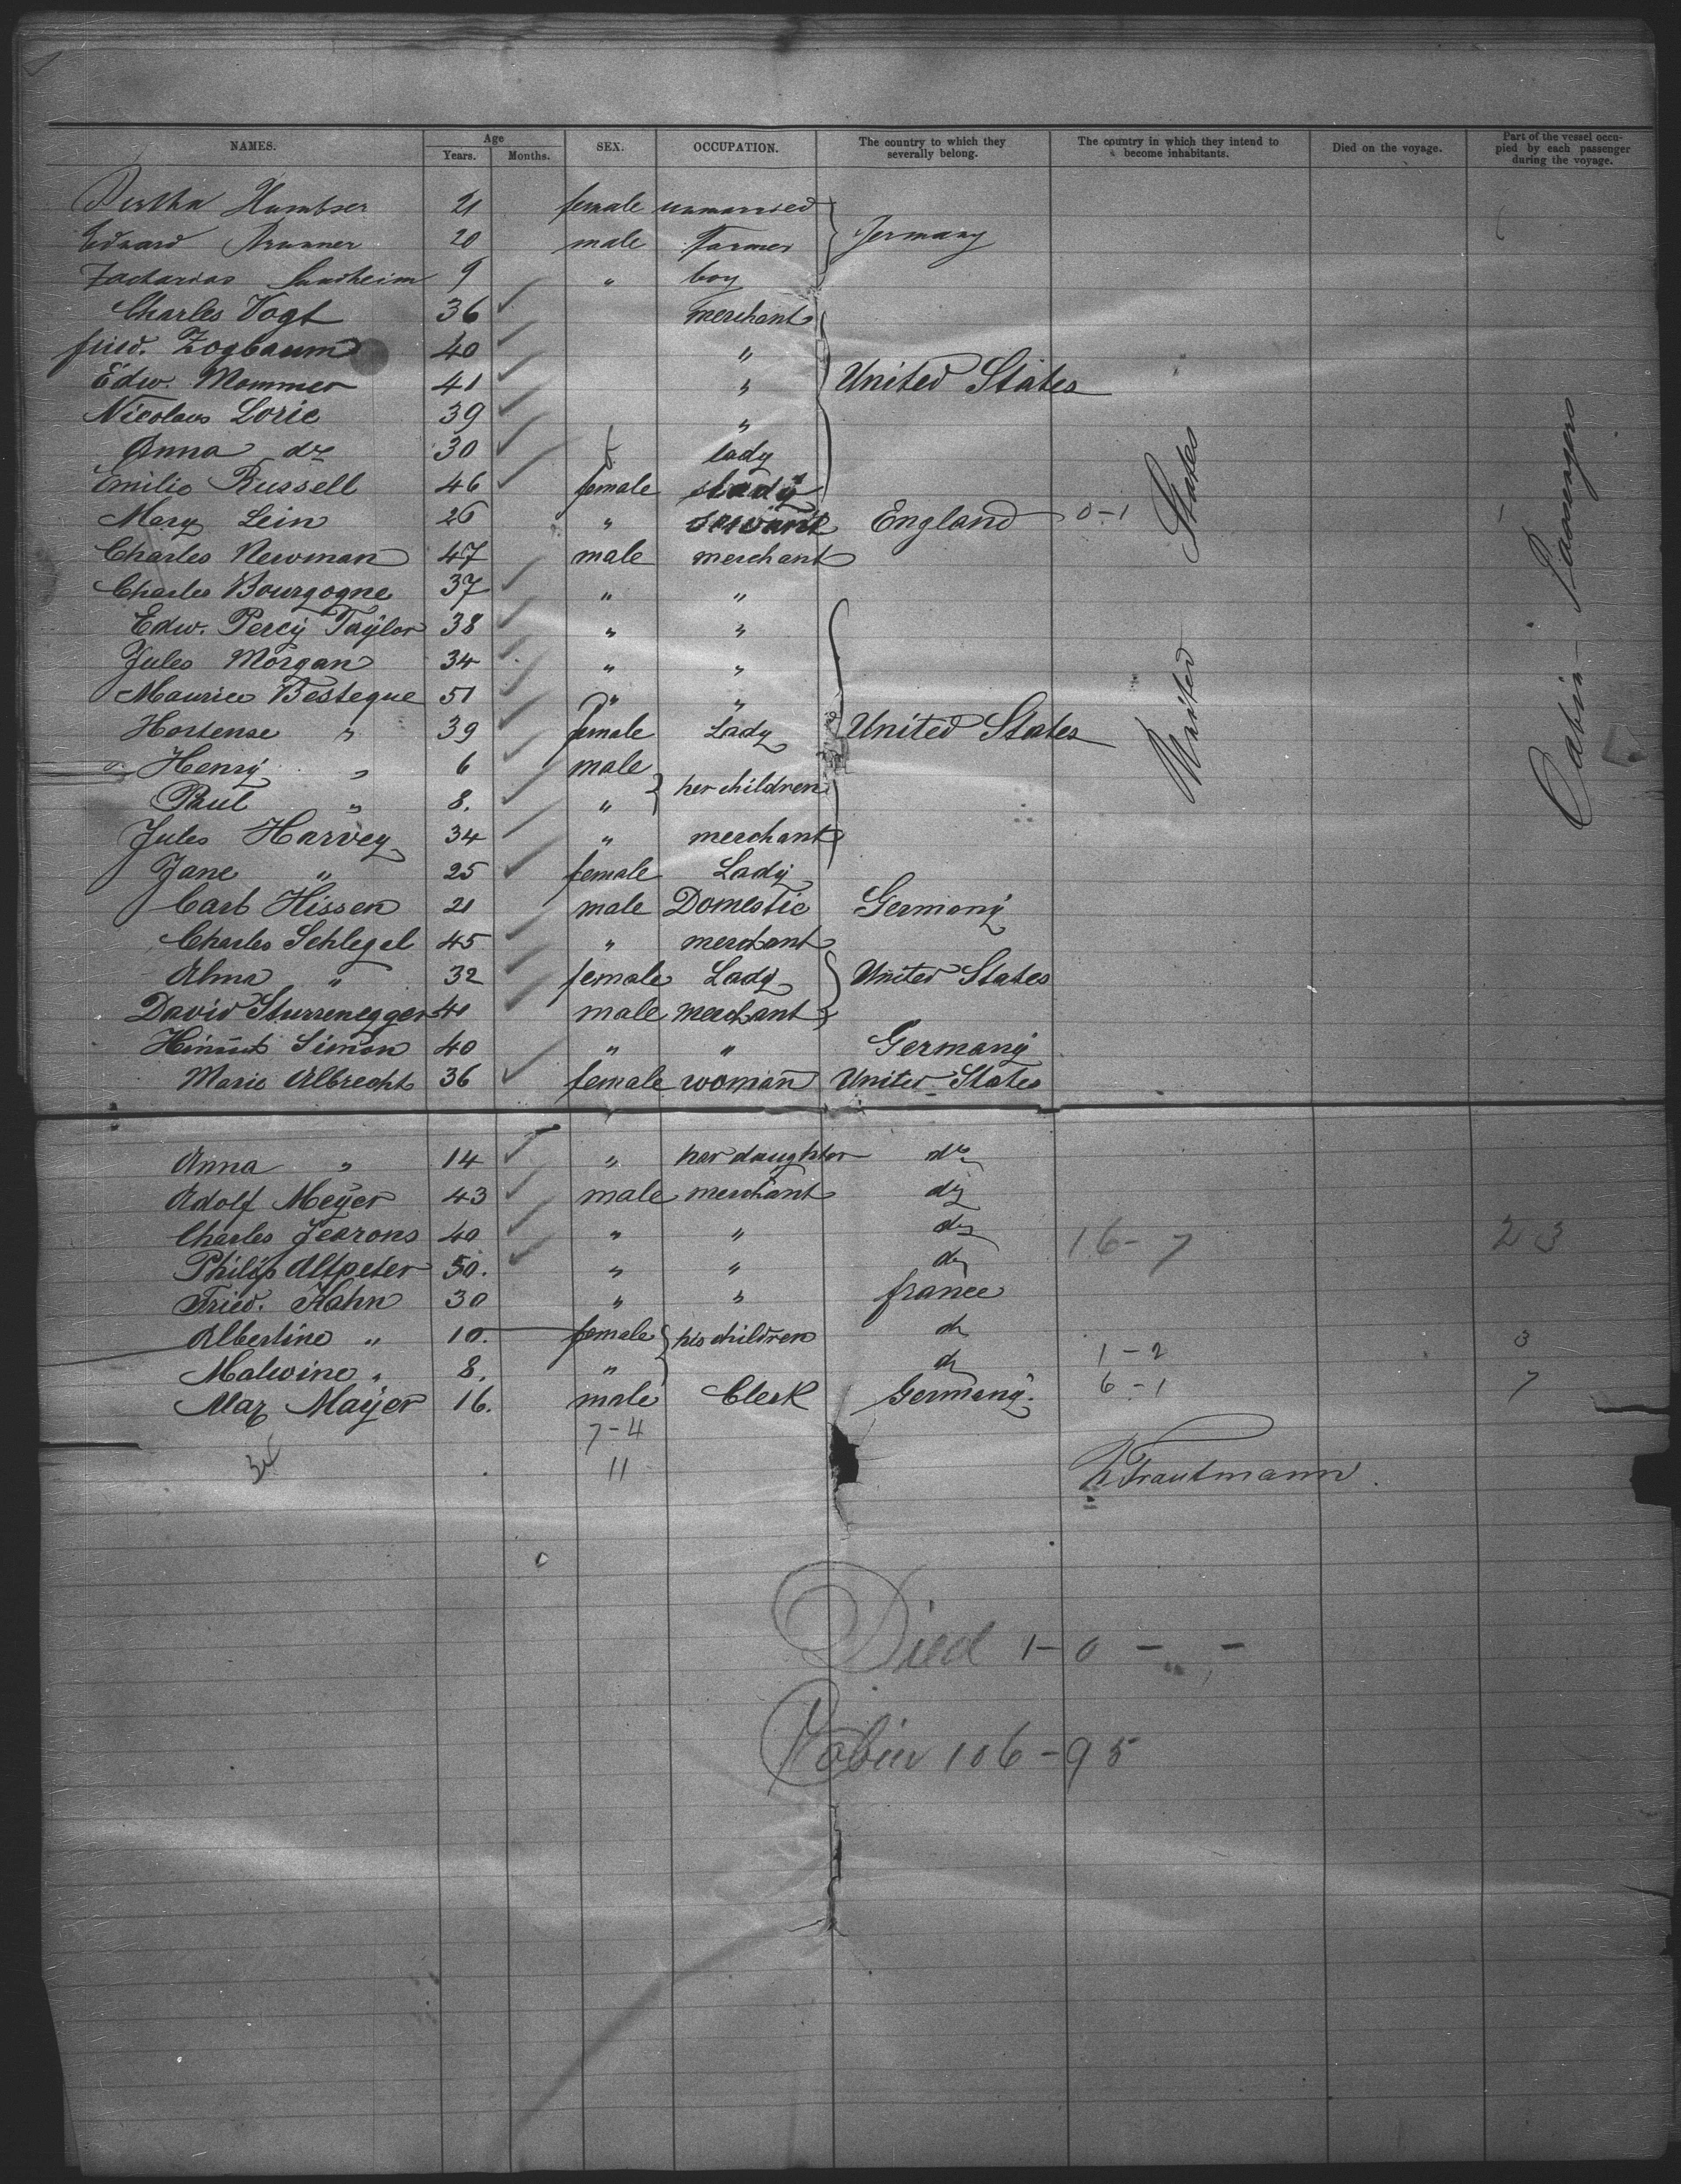 NAMES. Age Years. Months. SEX. OCCUPATION. The country to which they severally belong. The country in which they intend to become inhabitants. Died on the voyage. Part of the vessel occupied by each passenger during the voyage.
Bertha Humbser 21 female unmarried
Eduard Brunner 20 male Farmer Germany
Zacharias Sundheim 9 " boy
Charles Vogt 36 merchant
fried. Zogbaum 40 "
Edw. Mommer 41 " United States
Nicolaus Lorie 39 "
Anna do 30 lady
Emilie Russell 46 female lady
Mary Lein 26 " servant England 0-1
Charles Newman 47 male merchant
Charles Bourgogne 37 " "
Edw. Percy Taylor 38 " "
Jules Morgan 34 " "
Maurice Besteque 51 " "
Hortense " 39 female Lady United States
Henry " 6 male
Paul " 8. " her children
Jules Harvey 34 " merchant
Jane " 25 female Lady
Carl Hissen 21 male Domestic Germany
Charles Schlegel 45 " merchant
Alma " 32 female Lady United States
David Sturzenegger 41 male merchant
Simon 40 " " Germany
Marie Albrecht 36 female woman United States
United States
Cabin-Passengers
Anna " 14 " her daughter do
Adolf Meyer 43 male merchant do
Charles Jearons 40 " " do 16-7 23
Philip Altpeter 50. " " do
Fried. Kahn 30 " " france
Albertine " 10. female his children do 3
Malwine " 8. " do 1-2
Max Mayer 16. male Clerk Germany. 6-1 7
7-4
34 11 Trautmann.
Died 1-0 - -
Cabin 106-95